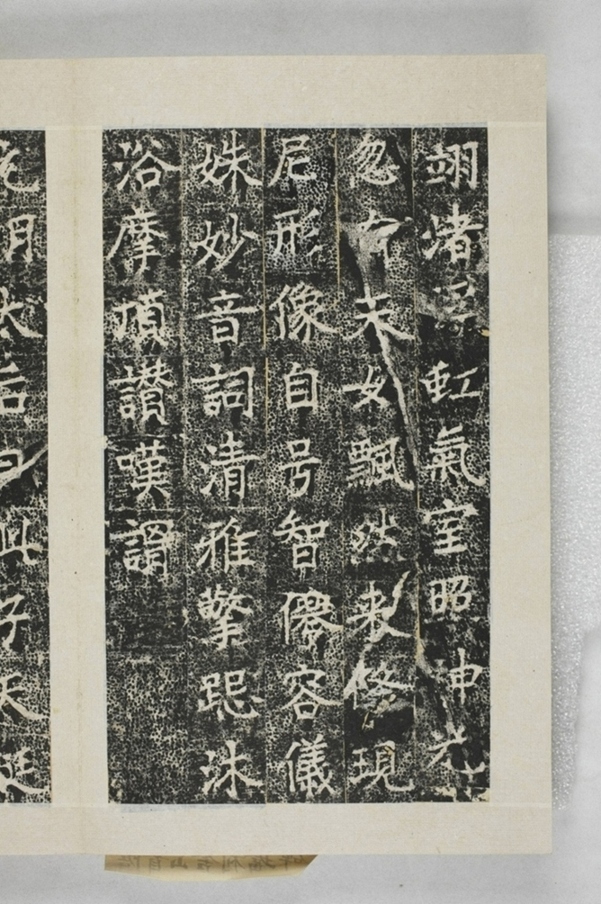 翊渚虹氣室昭神光
忽有天女飄然来現
尼形像自号智僊容儀
姝妙音詞清雅擎跽沐
浴摩頂讚嘆謂
明太后曰此子天挺